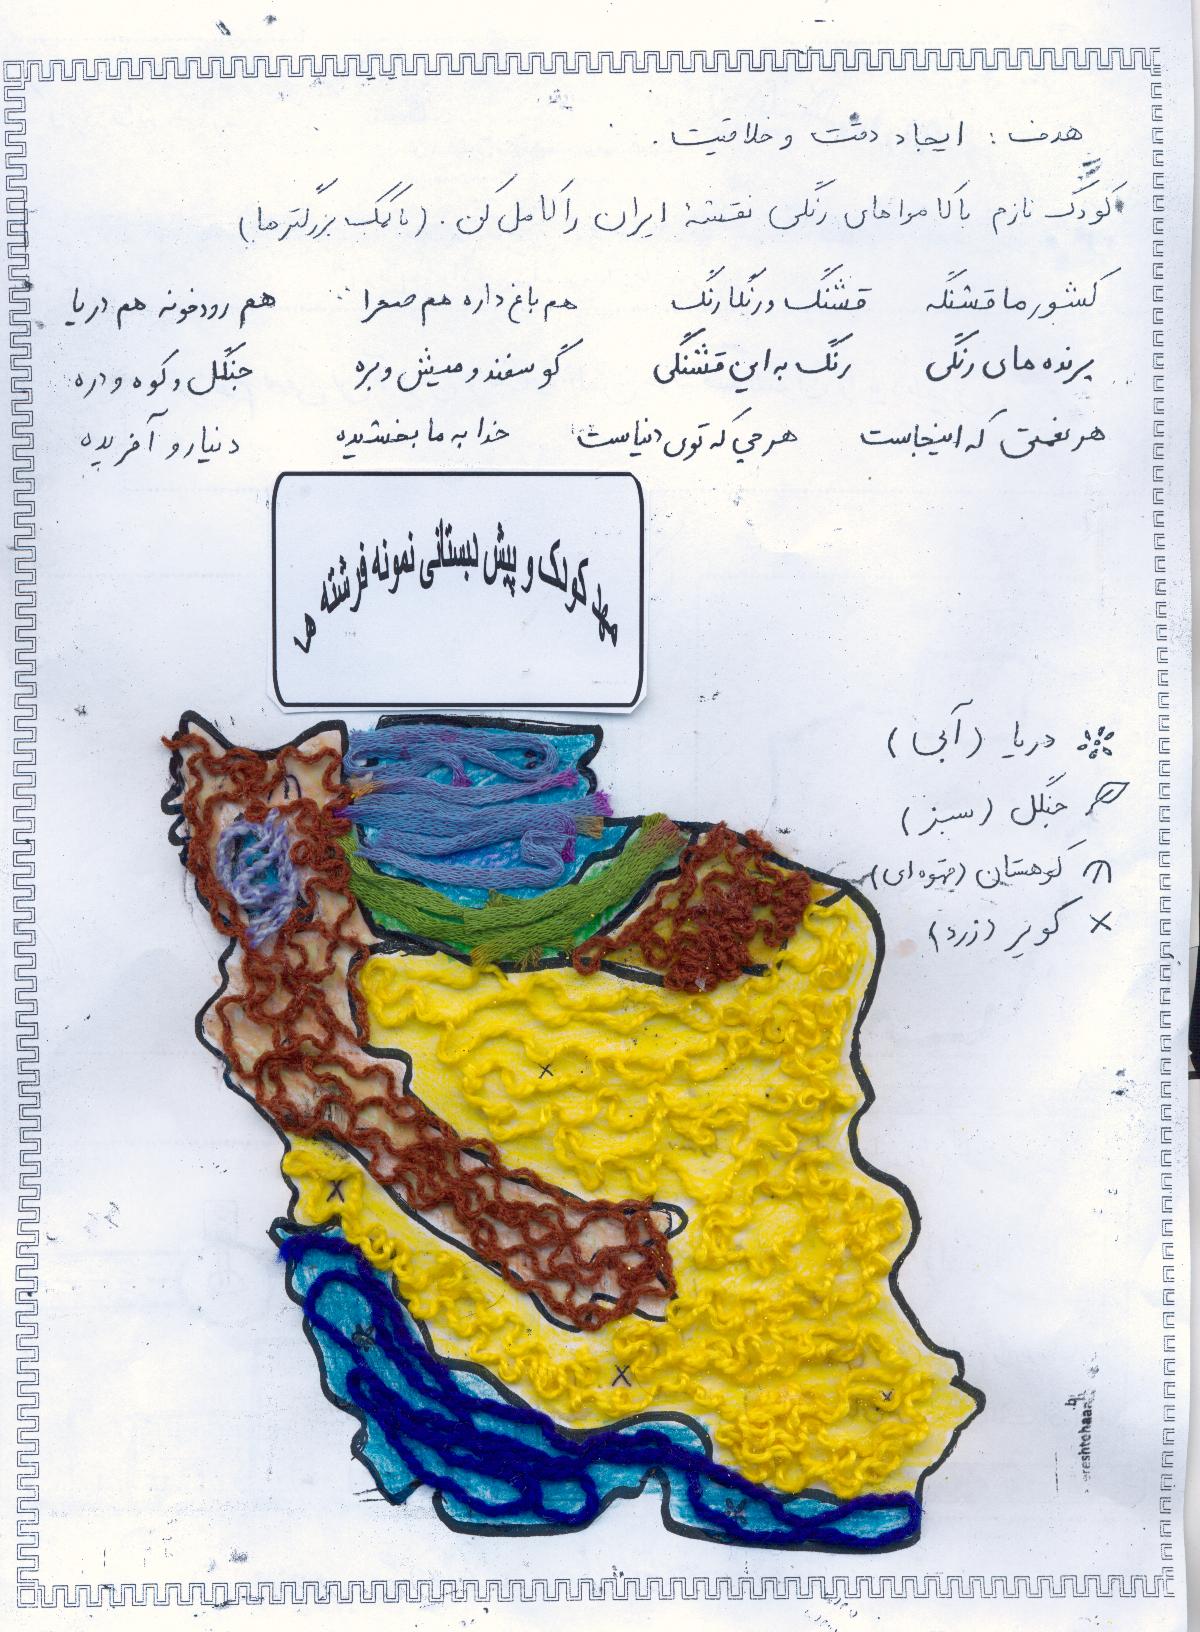 هدف : ایجاد دقت و خلاقیت .
کودک نازم با کامواهای رنگی نقشهٔ ایران را کامل کن . (با کمک بزرگترها)
کشور ما قشنگه قشنگ و رنگارنگ هم باغ داره هم صحرا هم رودخونه هم دریا
پرنده های رنگی رنگ به این قشنگی گوسفند و میش و بره جنگل و کوه و دره
هر نعمتی که اینجاست هر چی که توی دنیاست خدا به ما بخشیده دنیا رو آفریده
مهد کودک و پیش دبستانی نمونه فرشته ها
دریا (آبی)
جنگل (سبز)
کوهستان (قهوه ای)
× کویر (زرد)
×
×
×
×